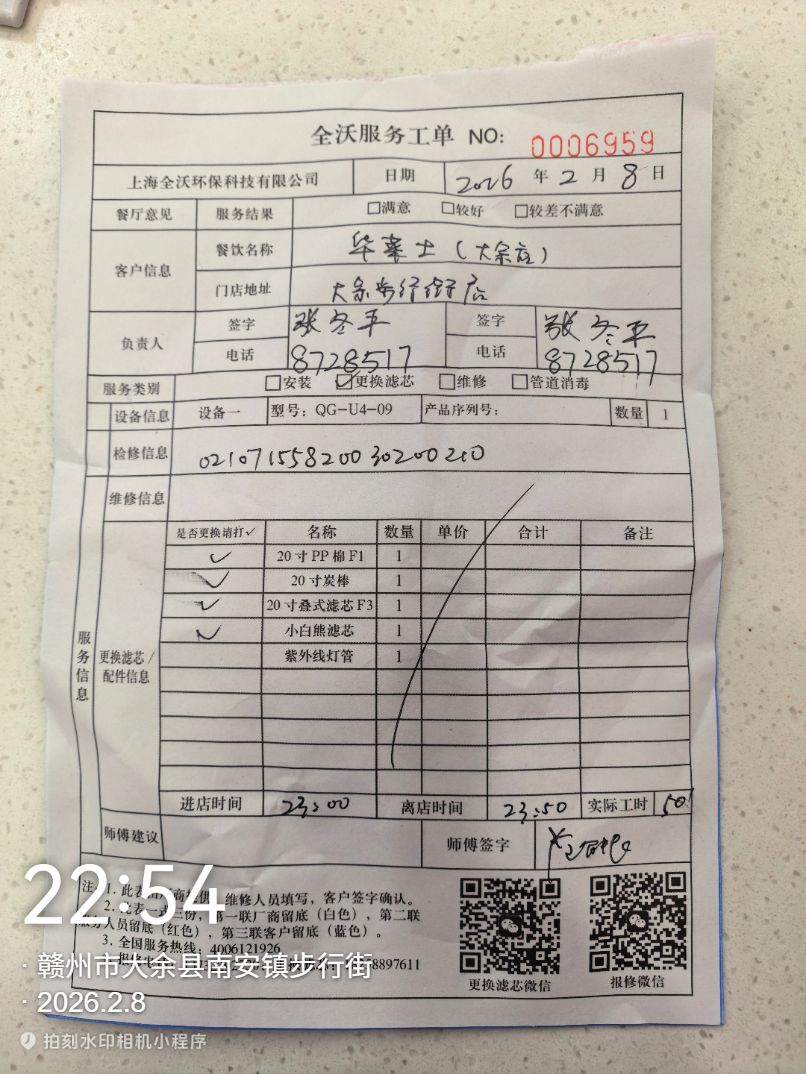 全沃服务工单 NO: 0006959
上海全沃环保科技有限公司 日期 2026 年 2 月 8 日
餐厅意见 服务结果 □满意 □较好 □较差不满意
客户信息 餐饮名称 华莱士(大余店)
门店地址 大余步行街店
负责人 签字 张冬平 签字 张冬平
电话 8728517 电话 8728517
服务类别 □安装 ☑更换滤芯 □维修 □管道消毒
设备信息 设备一 型号: QG-U4-09 产品序列号: 数量 1
检修信息 02107155820030200210
维修信息
服务信息
更换滤芯/配件信息
是否更换请打✓ 名称 数量 单价 合计 备注
✓ 20寸PP棉F1 1
✓ 20寸炭棒 1
✓ 20寸叠式滤芯F3 1
✓ 小白熊滤芯 1
紫外线灯管 1
进店时间 23:00 离店时间 23:50 实际工时 50
师傅建议 师傅签字
注: 1. 此表 维修人员填写,客户签字确认。
2. 此表一式三份,第一联厂商留底(白色),第二联
人员留底(红色),第三联客户留底(蓝色)。
3. 全国服务热线: 4006121926
8897611
更换滤芯微信 报修微信
22:54
· 赣州市大余县南安镇步行街
· 2026.2.8
拍刻水印相机小程序